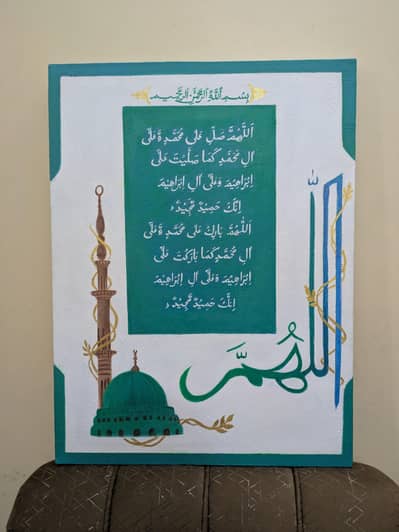 بِسْمِ اللّٰهِ الرَّحْمٰنِ الرَّحِيْمِ
اَللّٰهُمَّ صَلِّ عَلٰى مُحَمَّدٍ وَّعَلٰٓى
اٰلِ مُحَمَّدٍ كَمَا صَلَّيْتَ عَلٰٓى
اِبْرَاهِيْمَ وَعَلٰٓى اٰلِ اِبْرَاهِيْمَ
اِنَّكَ حَمِيْدٌ مَّجِيْدٌ
اَللّٰهُمَّ بَارِكْ عَلٰى مُحَمَّدٍ وَّعَلٰٓى
اٰلِ مُحَمَّدٍ كَمَا بَارَكْتَ عَلٰٓى
اِبْرَاهِيْمَ وَعَلٰٓى اٰلِ اِبْرَاهِيْمَ
اِنَّكَ حَمِيْدٌ مَّجِيْدٌ
اللّٰهُمَّ